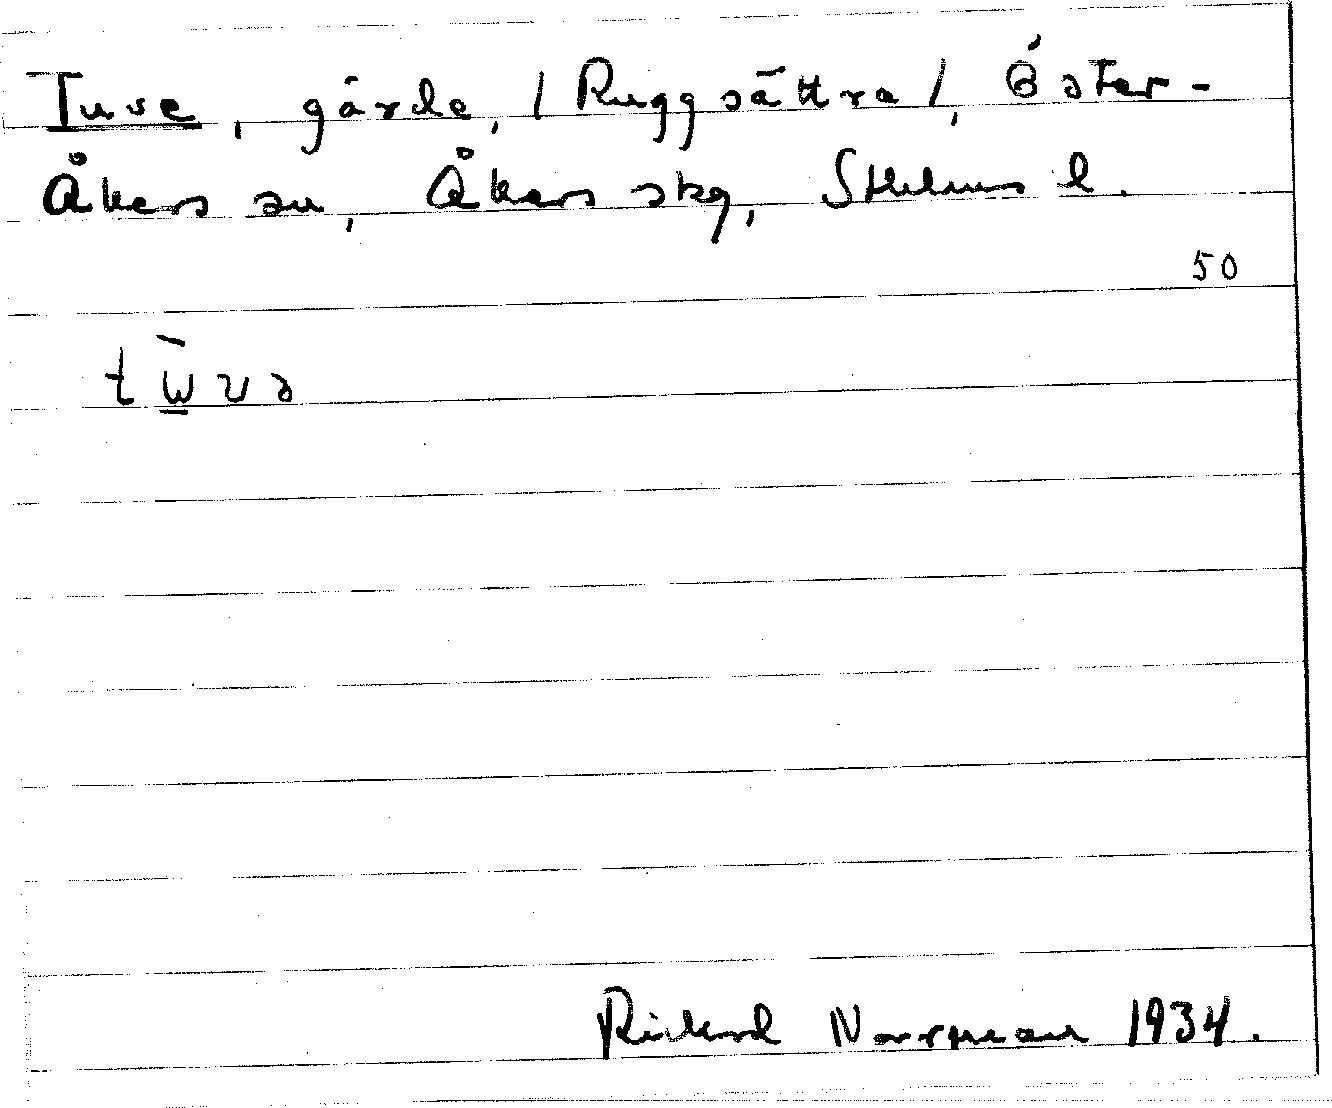 Tuve, gärde, / Ruggsättra /, Öster-
Åkers sn, Åkers skg, Sthlms l.
50
tɯ̱̄və
Rickard Norrman 1934.